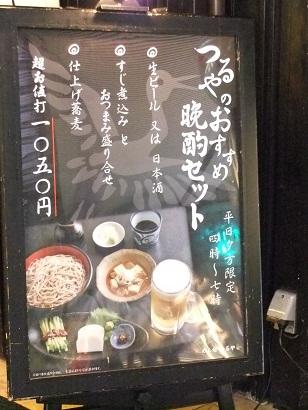 つるやのおすすめ
晩酌セット
平日夕方限定
四時～七時
生ビール 又は 日本酒
すじ煮込み と
おつまみ盛り合せ
仕上げ蕎麦
超お値打 一〇五〇円